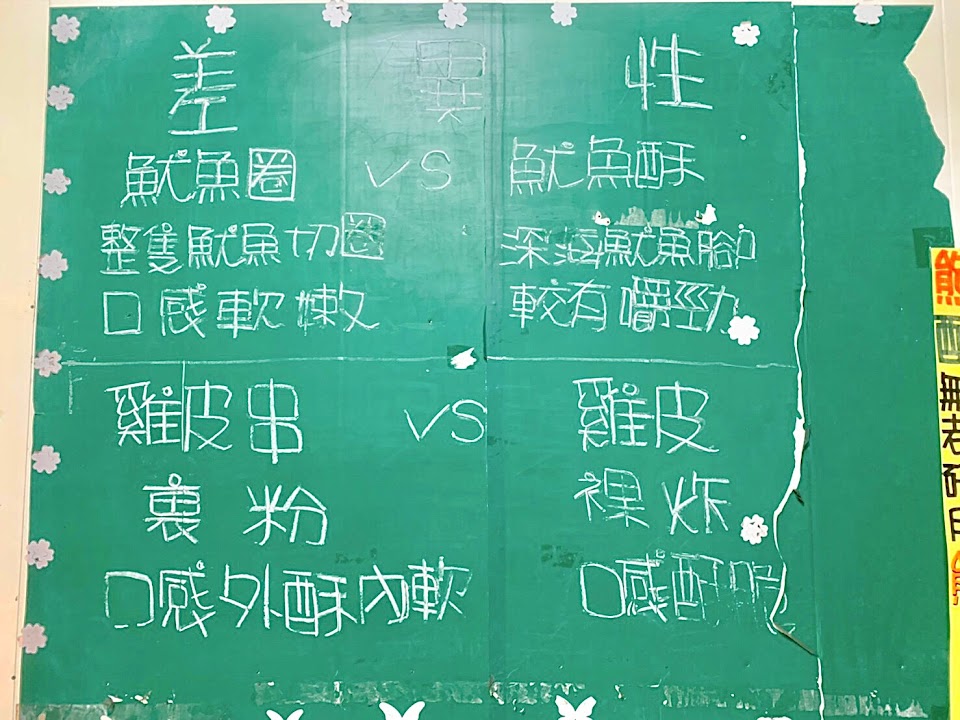 差異性
魷魚圈 VS 魷魚酥
整隻魷魚切圈 深海魷魚腳
口感軟嫩 較有嚼勁
雞皮串 VS 雞皮
裹粉 裸炸
口感外酥內軟 口感酥脆
熊
無老